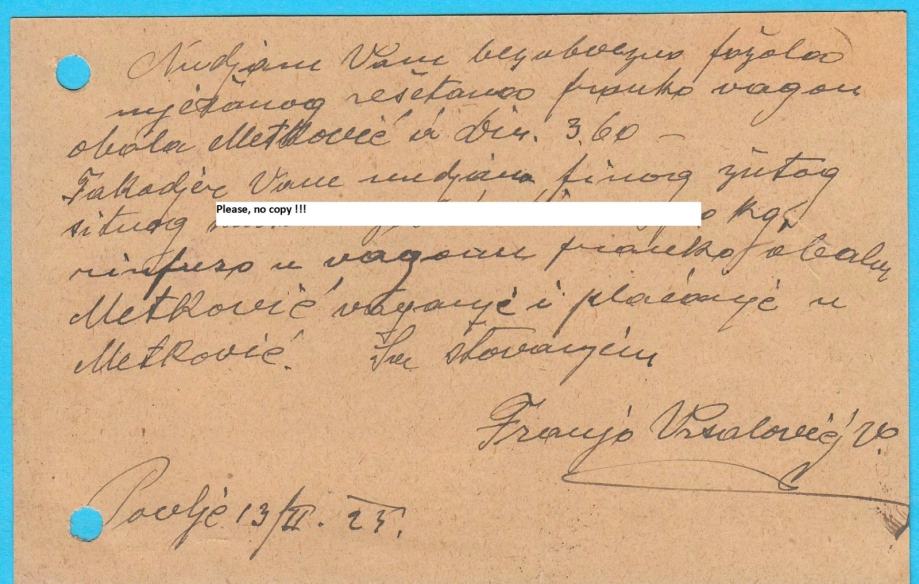 Nudjam Vam bezobvezno fažola
mješanog rešetana franko vagon
obala Metković à Din. 3.60 –
Takodjer Vam nudjam finog žutog
sitnog
Please, no copy !!!
kg,
rinfuzo u vagonu franko obala
Metković vaganje i plaćanje u
Metković. Sa štovanjem
Franjo Vrsalović
Povlje 13/II. 25.